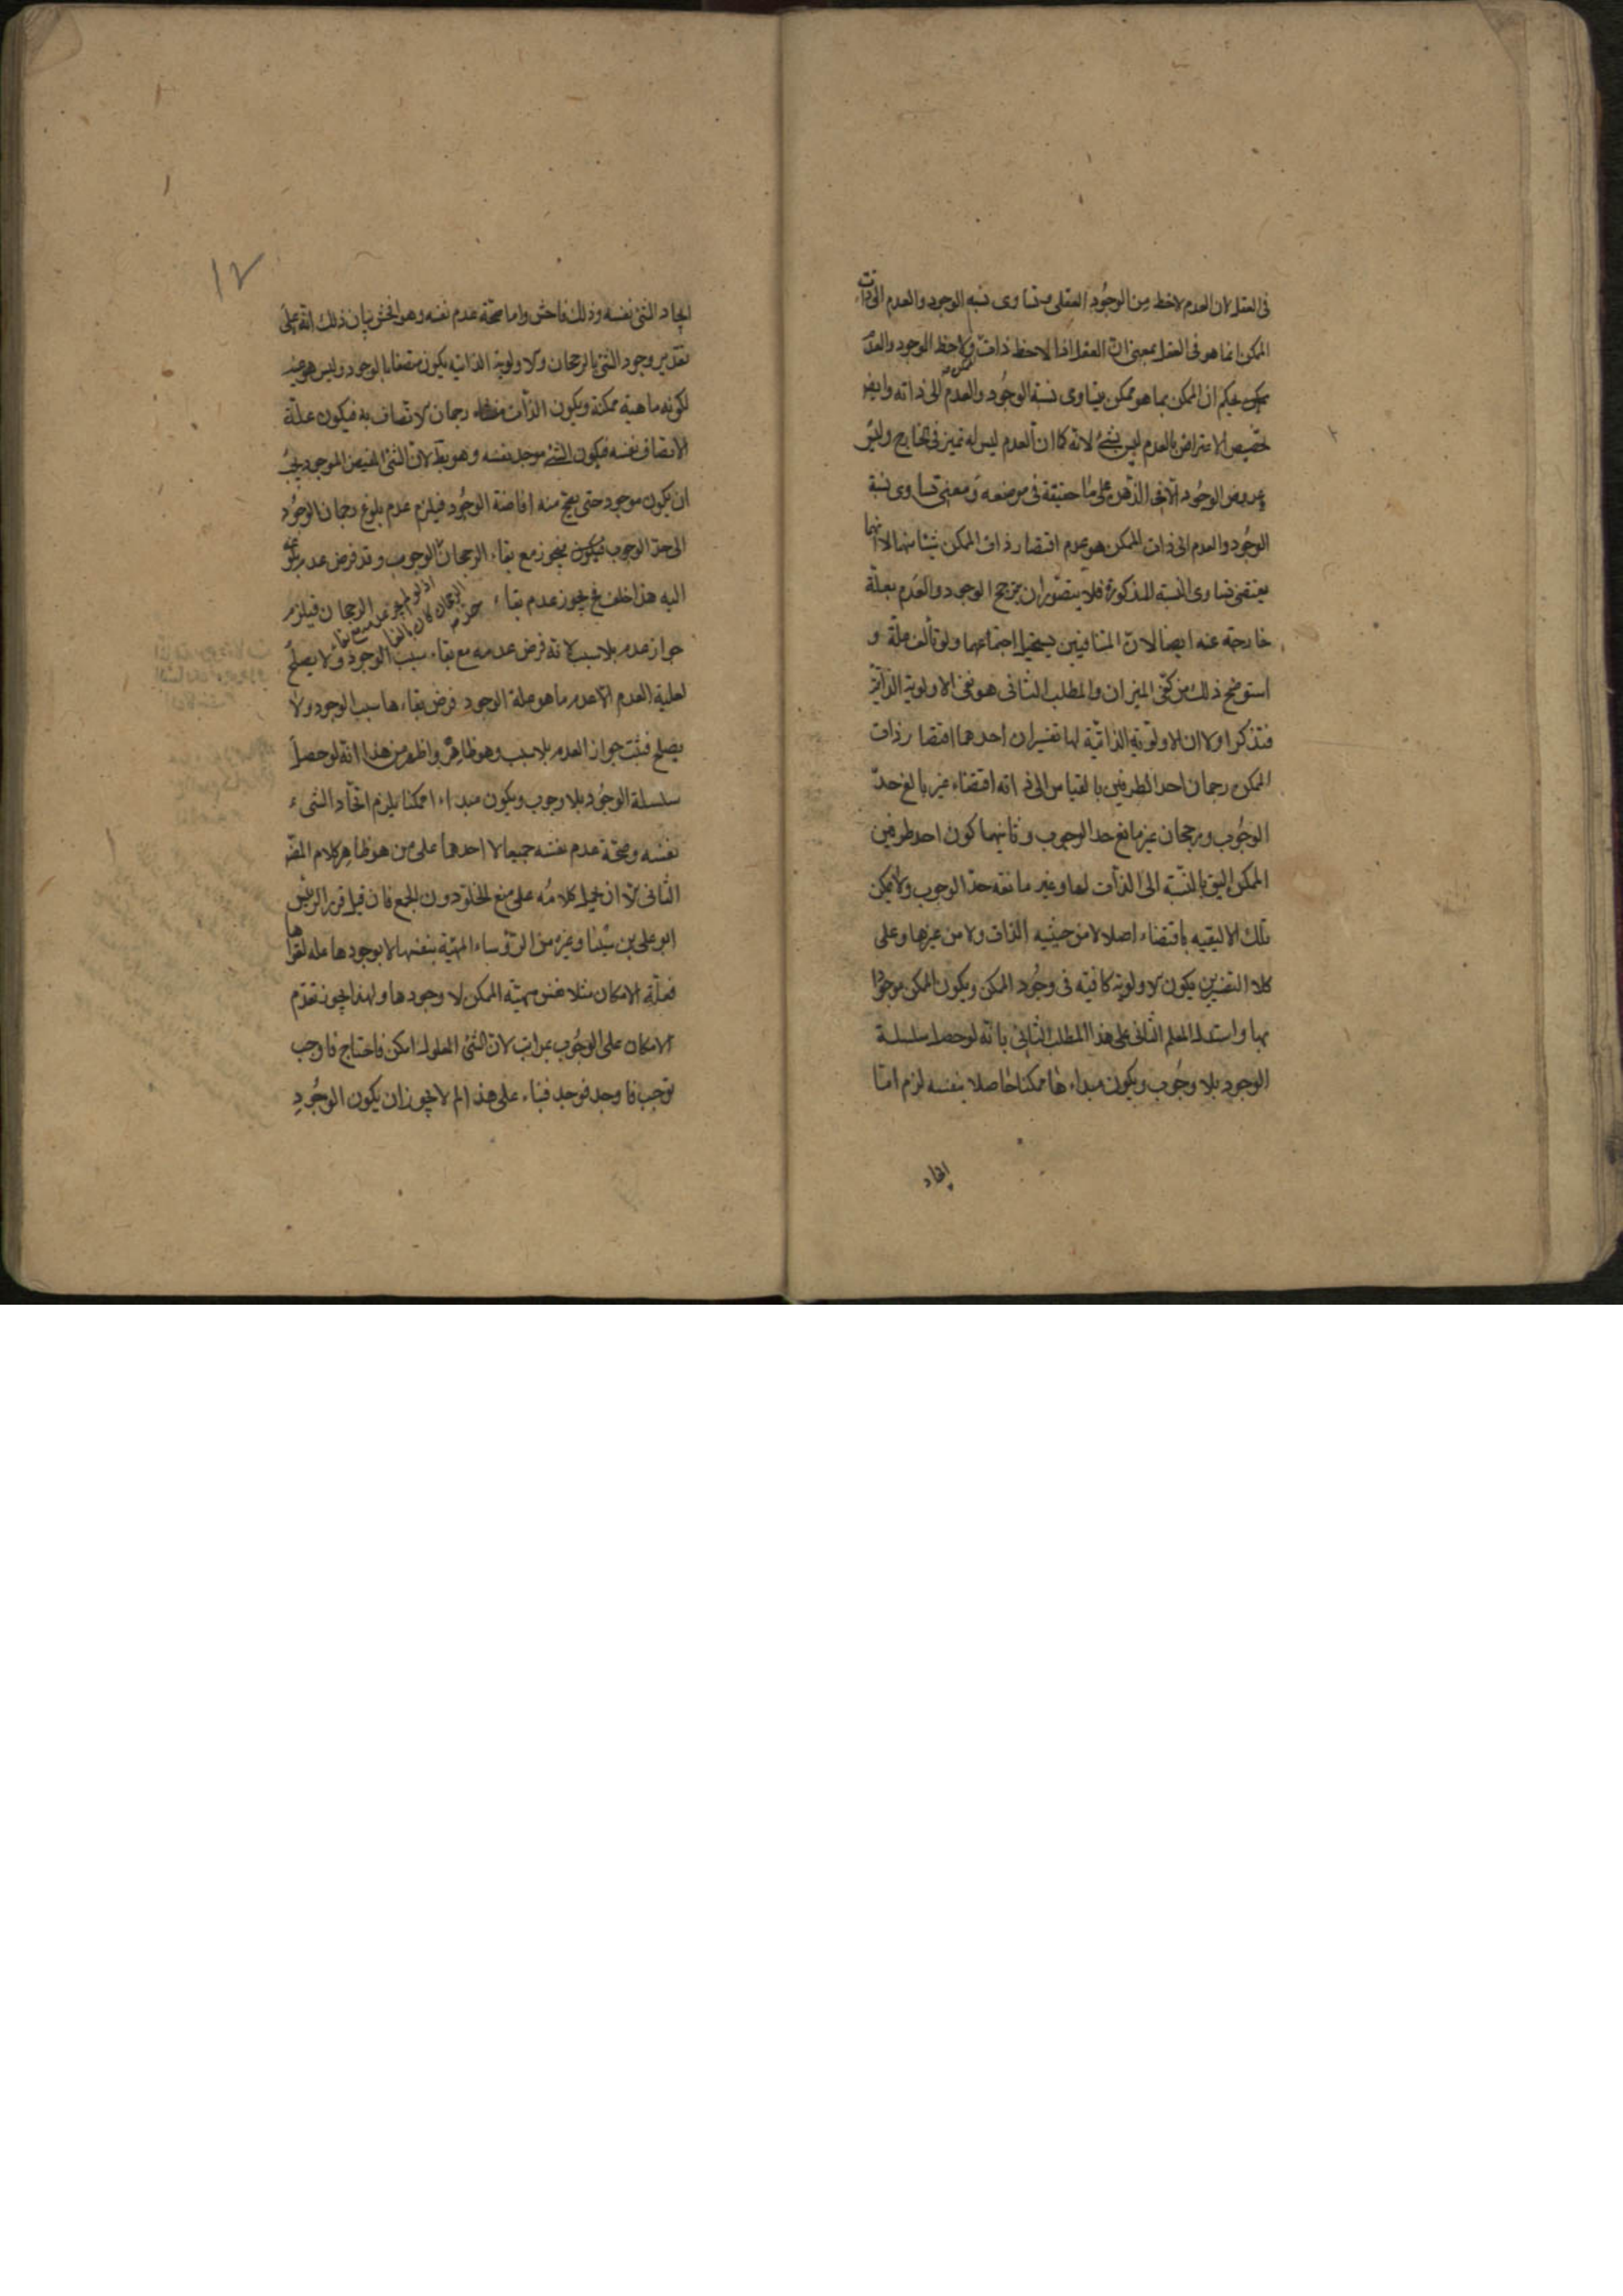 فى العقل لان العدم لاخط من الوجُود العقلى وتساوى نسبه الوجود والعدم الى ذات
الممكن انما هو فى العقل بمعنى انّ العقل اذا لاحظ ذات ولاحظ الوجود والعدم
يحكم ان الممكن بما هو ممكن يتساوى نسبة الوجُود والعدم الى ذاته وايض
تخصيص الاعتراض بالعدم ليس بشئ لانه كما ان العدم ليس له تميز فى الخارج وليس
عروض الوجُود الّا فى الذّهن على ما حقيقة فى موضعه ومعنى تساوى نسبة
الوجُود والعدم الى ذات الممكن هو عدم اقتضاء ذات الممكن شيئا منهما لا انهما
يقتضى تساوى النسبة المذكورة فلا يتصّور ان يترجح الوجود والعَدم بعلّة
خارجة عنه ايضا لانّ المتنافيين يستحيل اجتماعهما ولو بالف علّة و
استوضح ذلك من كفّتى الميزان والمطلب الثانى هو نفى الاولوية الذاتيّة
فنذكر اولا ان الاولويّه الذاتيّة لها تفسيران احدهما اقتضاء ذات
الممكن رجحان احد الطرفين بالقياس الى ذاته اقتضاء غير بالغ حدّ
الوجُوب ورجحان غير مانع حد الوجوب وثانيهما كون احد طرفين
الممكن اليق بالنسّبة الى الذّات لها وغير مانعه حدّ الوجوب ولا يمكن
تلك الاليقيه باقتضاء اصلا لا من حيثيه الذّات ولا من غيرها وعلى
كلا التفسيرين يكون الاولوية كافيّه فى وجُود الممكن ويكون الممكن موجودا
بها واستدل المعلم الثانى على هذا المطلب الثانى بانّه لو حصل سلسلة
الوجود بلا وجُوب ويكون مبداءها ممكنا حاصلا بنفسه لزم امّا
ايجاد
١٢
ايجاد الشئ نفسه وذلك فاحش واما صحّة عدم نفسه وهو افحش بيان ذلك انّه على
تقدير وجود الشئ بالرجحان والاولوية الذاتيه يكون متصفا بالوجود وليس هو عينه
لكونه ماهية ممكنة ويكون الذّات رجحان الاتصاف به فيكون علّة
الاتصاف نفسه فيكون الشئ موجد نفسه وهو بط لانّ الشئ المفيض الموجود يجب
ان يكون موجود حتى يصّح منه افاضة الوجُود فيلزم عدم بلوغ رجحان الوجُود
الى حدّ الوجوب فيكون يجوز مع بقاء الرجحان الوجوب وقد فرض عدم بلوغه
اليه هذا خلف فح يجوز عدم بقاء الرجحان فيلزم
اذ لو لم يجز عدمه مع بقاء الرجحان لكان بالغا
جواز عدم بلا سبب لانه فرض عدمه مع بقاء سبب الوجود ولا يصلحُ
لعلية العدم الّا عدم ما هو علة الوجود فرض بقاءها سبب الوجود ولا
يصلح فثبت جواز العدم بلا سبب وهو ظاهرٌ واظهر من هذا انّه لو حصل
سلسلة الوجُود بلا وجوب ويكون مبداء ممكنا يلزم اتحاد الشىء
نفسه وصحّة عدم نفسه جميعا لا احدهما على من هو ظاهر كلام المعّلم
الثانى الّا ان يحمل كلامُه على منع الخلّو دون الجمع فان قيل قرر الرئيس
ابو على بن سيّنا وغيره من الرّؤساء المهيّة بنفسها لا بوجودها علة لقواها
فعلّة الامكان مثلا نفس مهيّة الممكن لا وجودها ولهذا يجوز تقدّم
الامكان على الوجُوب بمراتب لانّ الشئ المعلول امكن فاحتاج فاوجب
فوجب فاوجد فوجد فبناء على هذا لم لا يجوز ان يكون الوجُودِ